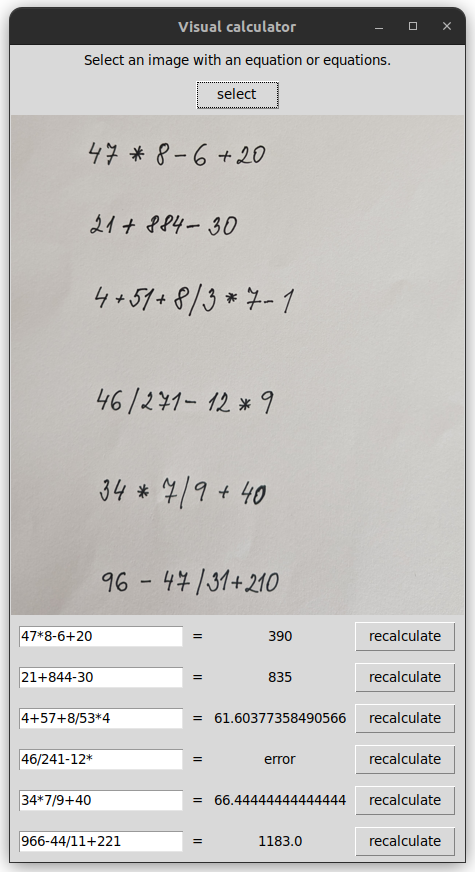 Visual calculator
Select an image with an equation or equations.
select
47 * 8 - 6 + 20
21 + 884 - 30
4 + 51 + 8 / 3 * 7 - 1
46 / 271 - 12 * 9
34 * 7 / 9 + 40
96 - 47 / 31 + 210
47*8-6+20 = 390 recalculate
21+844-30 = 835 recalculate
4+57+8/53*4 = 61.60377358490566 recalculate
46/241-12* = error recalculate
34*7/9+40 = 66.44444444444444 recalculate
966-44/11+221 = 1183.0 recalculate